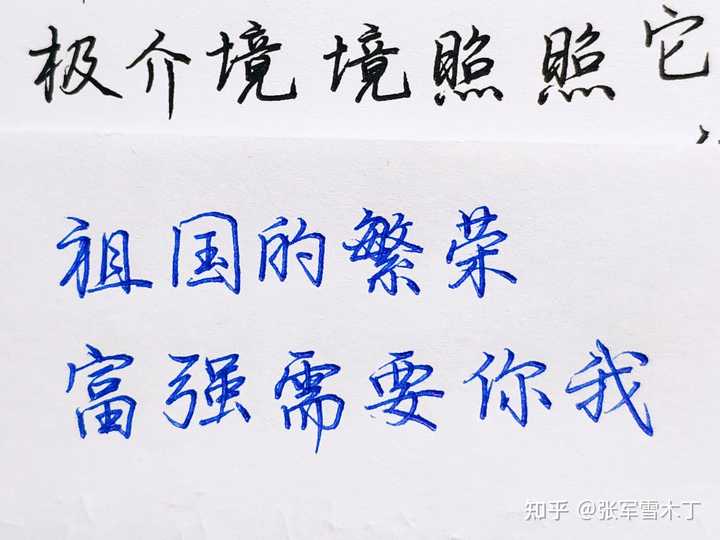 极介境境照照它
祖国的繁荣
富强需要你我
知乎 @张军雪木丁